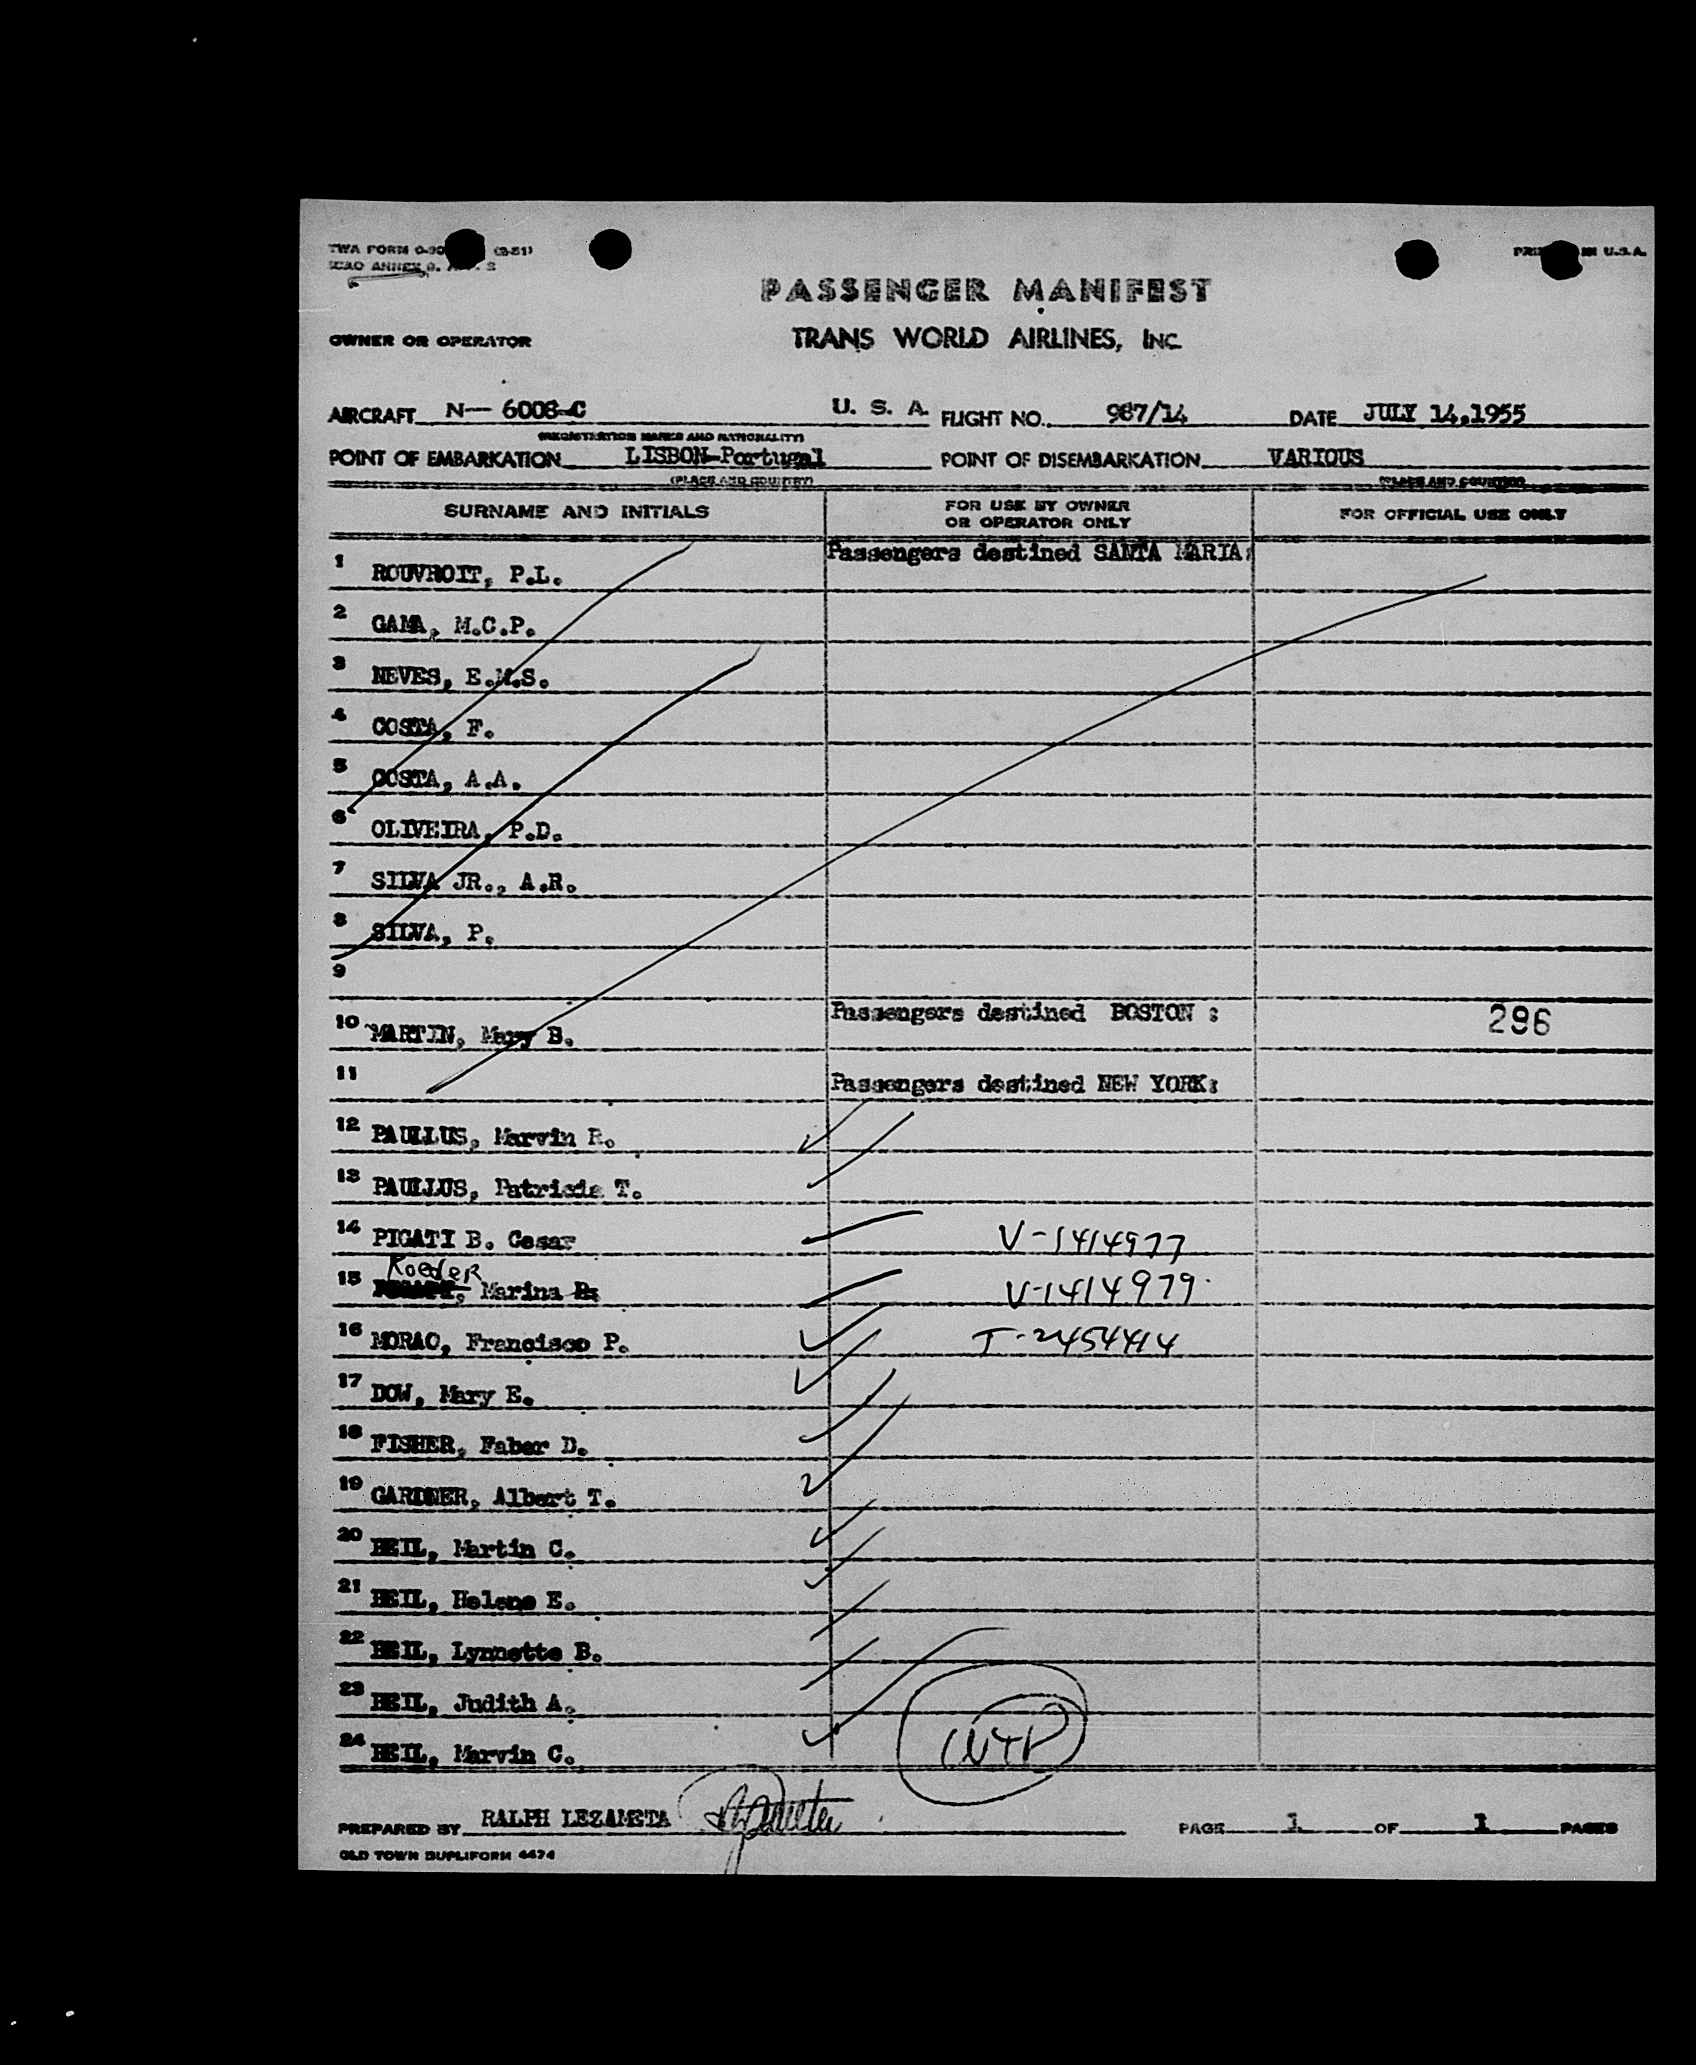 TWA FORM (2-51)
ICAO ANNEX 9.
IN U.S.A.
PASSENGER MANIFEST
OWNER OR OPERATOR
TRANS WORLD AIRLINES, INC.
AIRCRAFT N— 6008-C U. S. A. FLIGHT NO. 987/14 DATE JULY 14,1955
(REGISTRATION MARKS AND NATIONALITY)
POINT OF EMBARKATION LISBON-Portugal POINT OF DISEMBARKATION VARIOUS
(PLACE AND COUNTRY) (PLACE AND COUNTRY)
SURNAME AND INITIALS FOR USE BY OWNER OR OPERATOR ONLY FOR OFFICIAL USE ONLY
Passengers destined SANTA MARIA:
1 ROUVROIT, P.L.
2 GAMA, M.C.P.
3 NEVES, E.M.S.
4 COSTA, F.
5 COSTA, A.A.
6 OLIVEIRA, P.D.
7 SILVA JR., A.R.
8 SILVA, P.
9
Passengers destined BOSTON : 296
10 MARTIN, Mary B.
11 Passengers destined NEW YORK:
12 PAULLUS, Marvin R.
13 PAULLUS, Patricia T.
14 PIGATI B. Cesar V-1414977
Roeder
15 Marina V-1414979
16 MORAO, Francisco P. T-2454414
17 DOW, Mary E.
18 FISHER, Faber D.
19 GARDNER, Albert T.
20 HEIL, Martin C.
21 HEIL, Helene E.
22 HEIL, Lynnette B.
23 HEIL, Judith A.
24 HEIL, Marvin C.
PREPARED BY RALPH LEZAMETA PAGE 1 OF 1 PAGES
OLD TOWN DUPLIFORM 4474